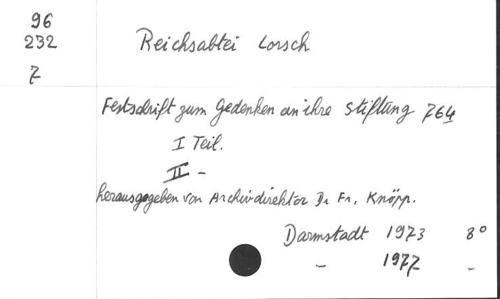 96
232
7
Reichsabtei Lorsch
Festschrift zum Gedenken an ihre Stiftung 764
I Teil.
II –
herausgegeben von Archivdirektor Dr Fr. Knöpp.
Darmstadt 1973 8°
– 1977 –